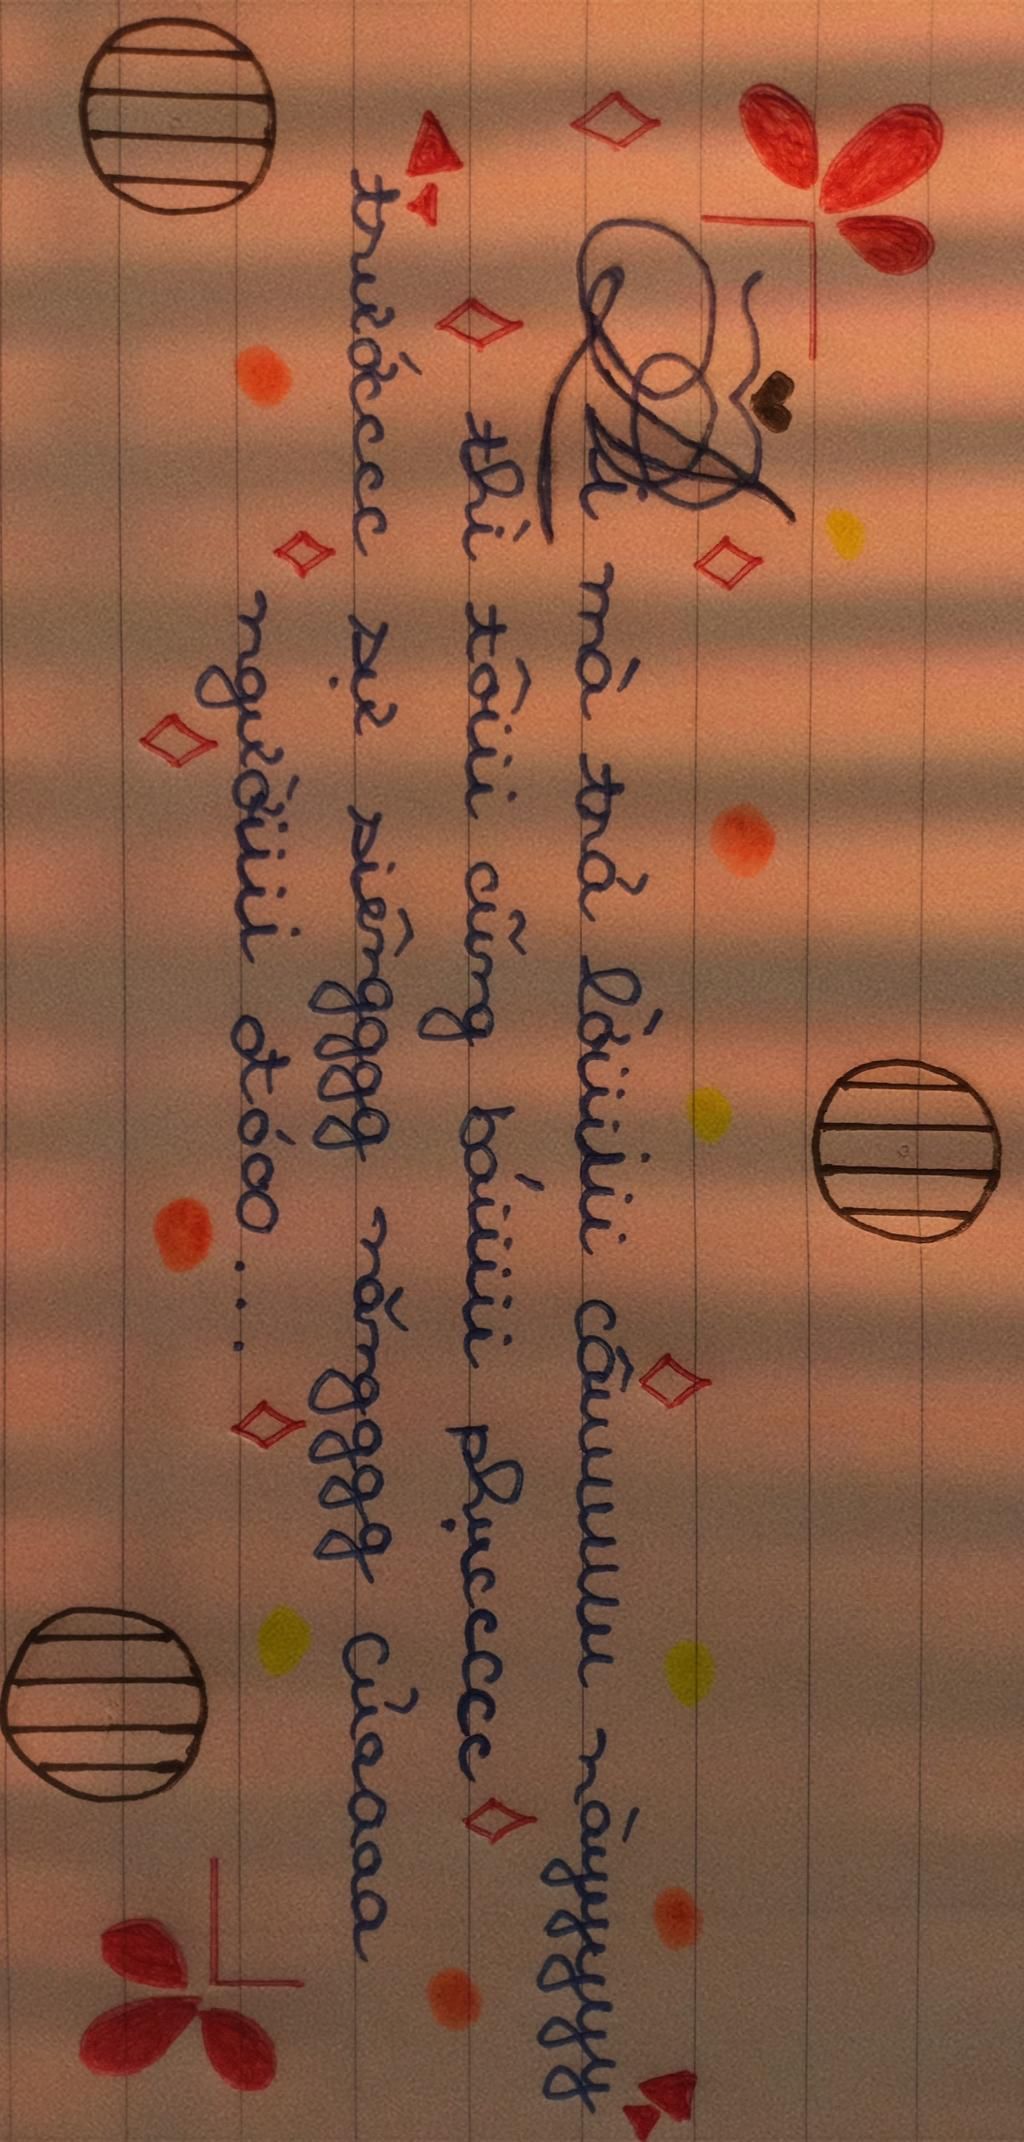 Ai mà trả lờiiiii câuuuuu nàyyyyy
thì tôiii cũng báiiiii phụccccc
trướcccc sự siêngggg năngggg củaaaa
ngườiiii đóoo...